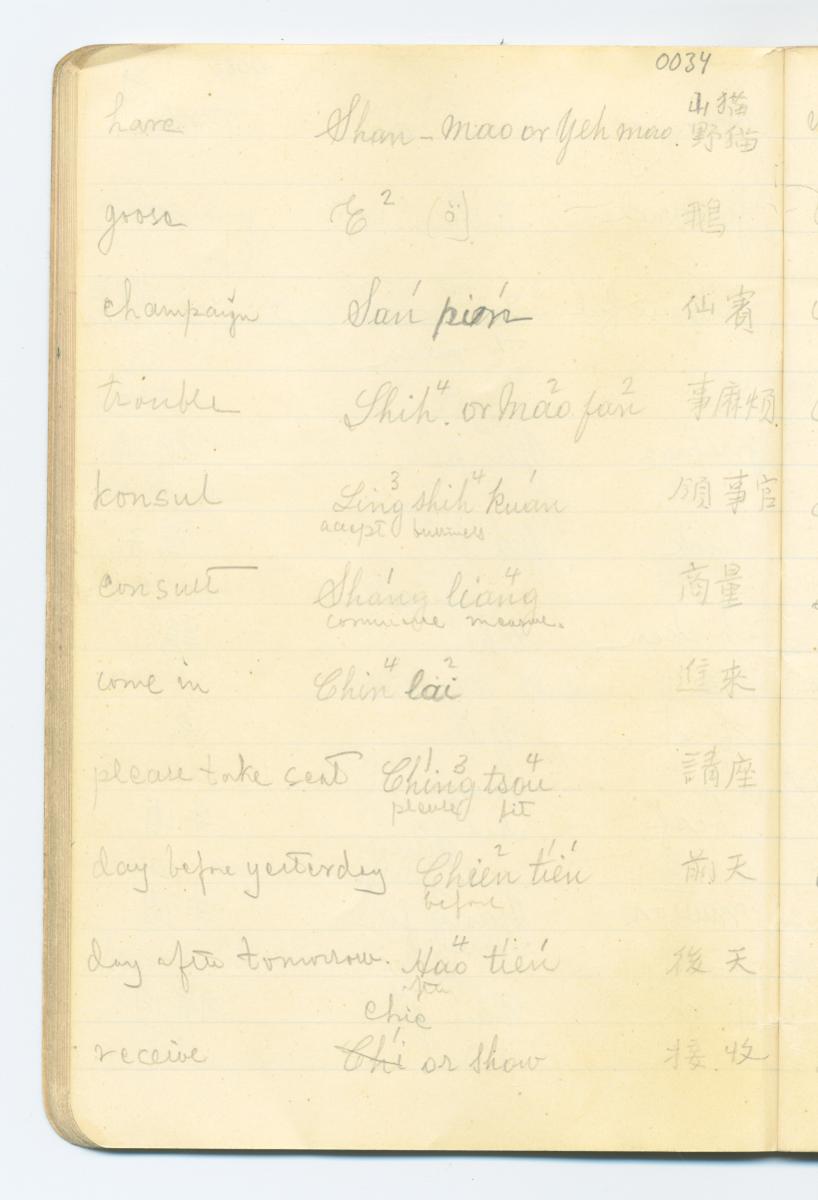 0034
hare Shan-mao or Yeh mao. 山猫
野貓
goose E² [ö] 鵝
champaign San' pien' 仙賓
trouble Shih⁴. or Ma²o fan² 事麻煩
konsul Ling³ shih⁴ kuan' 領事官
accept business
consult Shang' liang⁴ 商量
measure.
come in Chin⁴ lai² 進來
please take seat Ching¹ ³ tsou⁴ 講座
please sit
day before yesterday Chien² tien' 前天
before
day after tomorrow. Hao⁴ tien' 後天
after
chie
receive Chi' or show 接.收